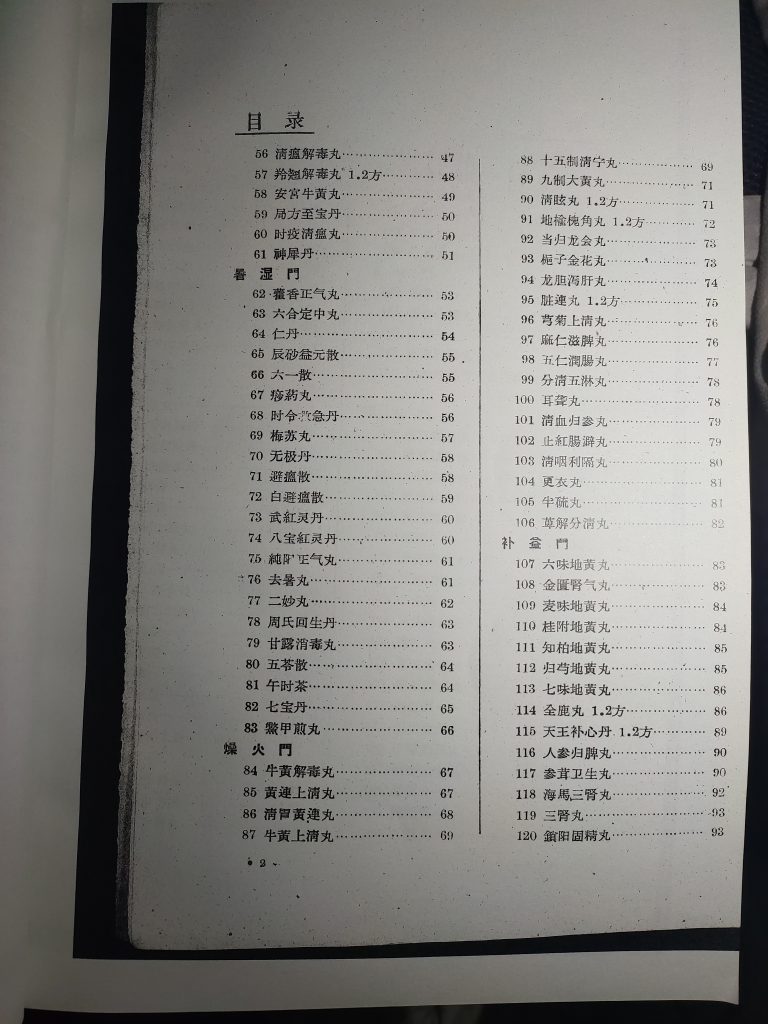 目录
56 清瘟解毒丸⋯⋯ 47
57 羚翘解毒丸 1.2方⋯⋯ 48
58 安宫牛黄丸⋯⋯ 49
59 局方至宝丹⋯⋯ 50
60 时疫清瘟丸⋯⋯ 50
61 神犀丹⋯⋯ 51
暑湿門
62 藿香正气丸⋯⋯ 53
63 六合定中丸⋯⋯ 53
64 仁丹⋯⋯ 54
65 辰砂益元散⋯⋯ 55
66 六一散⋯⋯ 55
67 痧葯丸⋯⋯ 56
68 时令救急丹⋯⋯ 56
69 梅苏丸⋯⋯ 57
70 无极丹⋯⋯ 58
71 避瘟散⋯⋯ 58
72 白避瘟散⋯⋯ 59
73 武紅灵丹⋯⋯ 60
74 八宝紅灵丹⋯⋯ 60
75 純阳正气丸⋯⋯ 61
76 去暑丸⋯⋯ 61
77 二妙丸⋯⋯ 62
78 周氏回生丹⋯⋯ 63
79 甘露消毒丸⋯⋯ 63
80 五苓散⋯⋯ 64
81 午时茶⋯⋯ 64
82 七宝丹⋯⋯ 65
83 鱉甲煎丸⋯⋯ 66
燥火門
84 牛黄解毒丸⋯⋯ 67
85 黄連上清丸⋯⋯ 67
86 清胃黄連丸⋯⋯ 68
87 牛黄上清丸⋯⋯ 69
88 十五制清宁丸⋯⋯ 69
89 九制大黄丸⋯⋯ 71
90 清眩丸 1.2方⋯⋯ 71
91 地榆槐角丸 1.2方⋯⋯ 72
92 当归龙会丸⋯⋯ 73
93 梔子金花丸⋯⋯ 73
94 龙胆泻肝丸⋯⋯ 74
95 脏連丸 1.2方⋯⋯ 75
96 芎菊上清丸⋯⋯ 76
97 麻仁滋脾丸⋯⋯ 76
98 五仁潤腸丸⋯⋯ 77
99 分清五淋丸⋯⋯ 78
100 耳聋丸⋯⋯ 78
101 清血归参丸⋯⋯ 79
102 止紅腸澼丸⋯⋯ 79
103 清咽利隔丸⋯⋯ 80
104 更衣丸⋯⋯ 81
105 半硫丸⋯⋯ 81
106 萆解分清丸⋯⋯ 82
补益門
107 六味地黄丸⋯⋯ 83
108 金匱腎气丸⋯⋯ 83
109 麦味地黄丸⋯⋯ 84
110 桂附地黄丸⋯⋯ 84
111 知柏地黄丸⋯⋯ 85
112 归芍地黄丸⋯⋯ 85
113 七味地黄丸⋯⋯ 86
114 全鹿丸 1.2方⋯⋯ 86
115 天王补心丹 1.2方⋯⋯ 89
116 人参归脾丸⋯⋯ 90
117 参茸卫生丸⋯⋯ 90
118 海馬三腎丸⋯⋯ 92
119 三腎丸⋯⋯ 93
120 鎖阳固精丸⋯⋯ 93
• 2